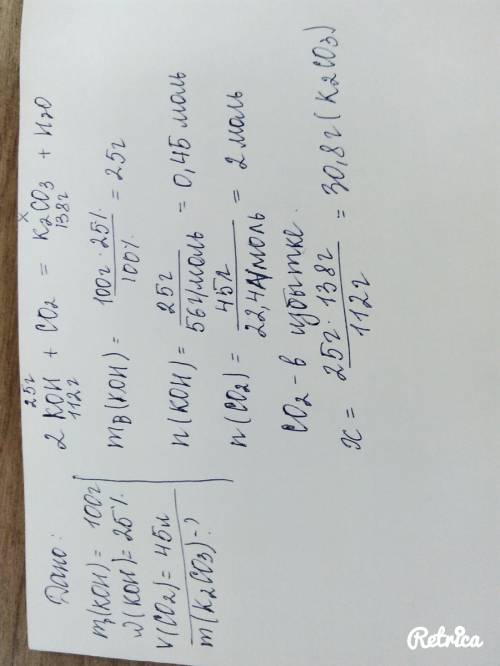 Дано:
m(KOH) = 100г
ω(KOH) = 25%
V(CO2) = 45л
m(K2CO3) - ?
25г x
2 KOH + CO2 = K2CO3 + H2O
112г 138г
mв(KOH) = 100г · 25% / 100% = 25г
n(KOH) = 25г / 56г/моль = 0,45 моль
n(CO2) = 45л / 22,4л/моль = 2 моль
CO2 - в избытке.
x = 25г · 138г / 112г = 30,8г (K2CO3)
Retrica